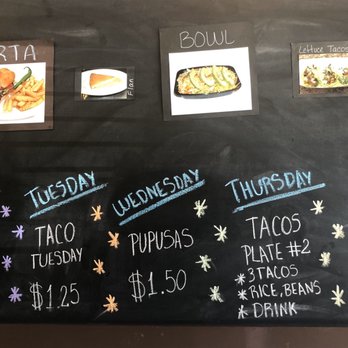 RTA
Flan
BOWL
Lettuce Tacos
TUESDAY
TACO
TUESDAY
$1.25
WEDNESDAY
PUPUSAS
$1.50
THURSDAY
TACOS
PLATE #2
* 3 TACOS
* RICE, BEANS
* DRINK